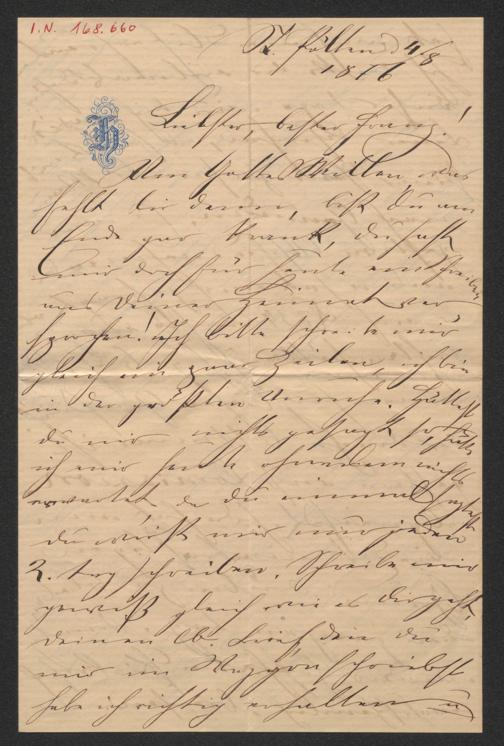 I.N. 168.660
St. Pölten d 4/8
1876
H
Liebster, bester Franz!
Um Gottes Willen was
fehlt dir denn, bist du am
Ende gar krank, du hast
mir doch für heute ein Schreiben
aus deiner Heimat ver
sprochen! Ich bitte schreibe mir
gleich ein paar Zeilen, ich bin
in der größten Unruhe. Hättest
du mir nichts gesagt so hätte
ich mir heute ohnedem nichts
erwartet da du einmal sagtest
du wirst mir nur jeden
2. tag schreiben. Schreibe mir
gewiß gleich wie es dir geht.
deinen lb. Brief den du
mir im Waggon schriebst
habe ich richtig erhalten u